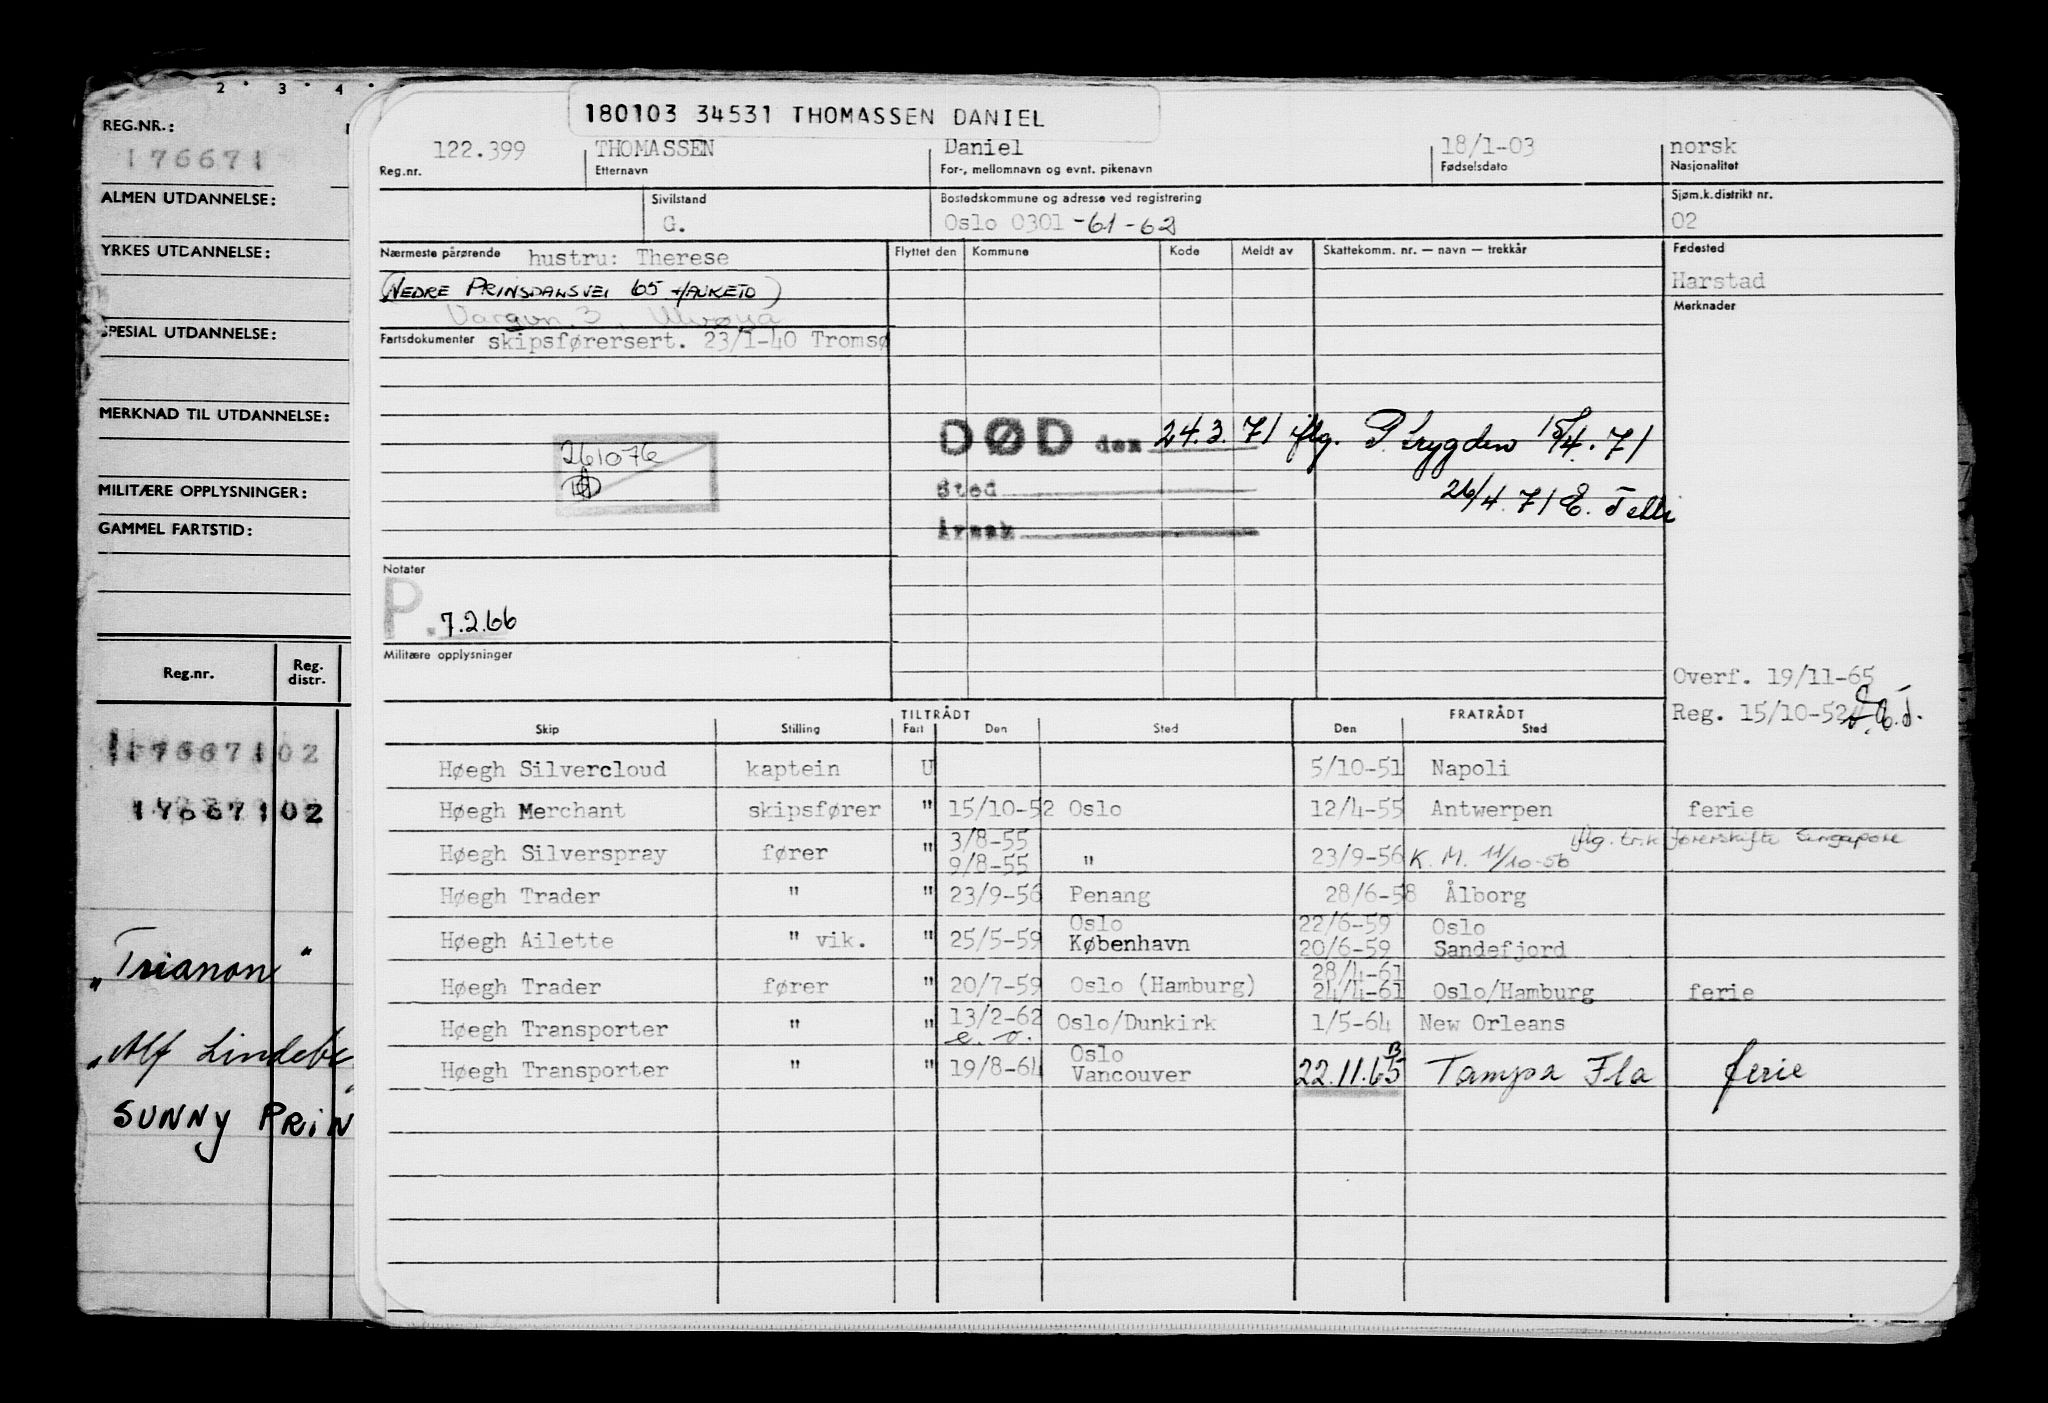 2 · 3 · 4 ·
REG.NR.:
176671
ALMEN UTDANNELSE:
YRKES UTDANNELSE:
SPESIAL UTDANNELSE:
MERKNAD TIL UTDANNELSE:
MILITÆRE OPPLYSNINGER:
GAMMEL FARTSTID:
Reg.nr. Reg. distr.
17667102
17667102
"Trianon"
"Alf Lindebe
SUNNY PRIN
180103 34531 THOMASSEN DANIEL
122.399 THOMASSEN Daniel 18/1-03 norsk
Reg.nr. Etternavn For-, mellomnavn og evnt. pikenavn Fødselsdato Nasjonalitet
Sivilstand Bostedskommune og adresse ved registrering Sjøm.k.distrikt nr.
G. Oslo 0301 -61-62 02
Nærmeste pårørende hustru: Therese Flyttet den Kommune Kode Meldt av Skattekomm. nr. — navn — trekkår Fødested
(NEDRE PRINSDALSVEI 65 HAUKETO) Harstad
3, Ulvøya Merknader
Fartsdokumenter skipsførersert. 23/1-40 Tromsø
DØD den 24.3.71 iflg. P. trygden 15/4.71
261076
Sted 26/4.71 E.
Årsak
Notater
P. 7.2.66
Militære opplysninger
Overf. 19/11-65
Reg. 15/10-52 E.T.
TILTRÅDT FRATRÅDT
Skip Stilling Fart Den Sted Den Sted
Høegh Silvercloud kaptein U 5/10-51 Napoli
Høegh Merchant skipsfører " 15/10-52 Oslo 12/4-55 Antwerpen ferie
3/8-55 iflg. tr.k førerskifte Singapore
Høegh Silverspray fører " 9/8-55 " 23/9-56 K. M. 11/10-56
Høegh Trader " " 23/9-56 Penang 28/6-58 Ålborg
Oslo 22/6-59 Oslo
Høegh Ailette " vik. " 25/5-59 København 20/6-59 Sandefjord
28/4-61
Høegh Trader fører " 20/7-59 Oslo (Hamburg) 24/4-61 Oslo/Hamburg ferie
Høegh Transporter " " 13/2-62 Oslo/Dunkirk 1/5-64 New Orleans
e. o.
Oslo
Høegh Transporter " " 19/8-64 Vancouver 22.11.65 Tampa Fla ferie